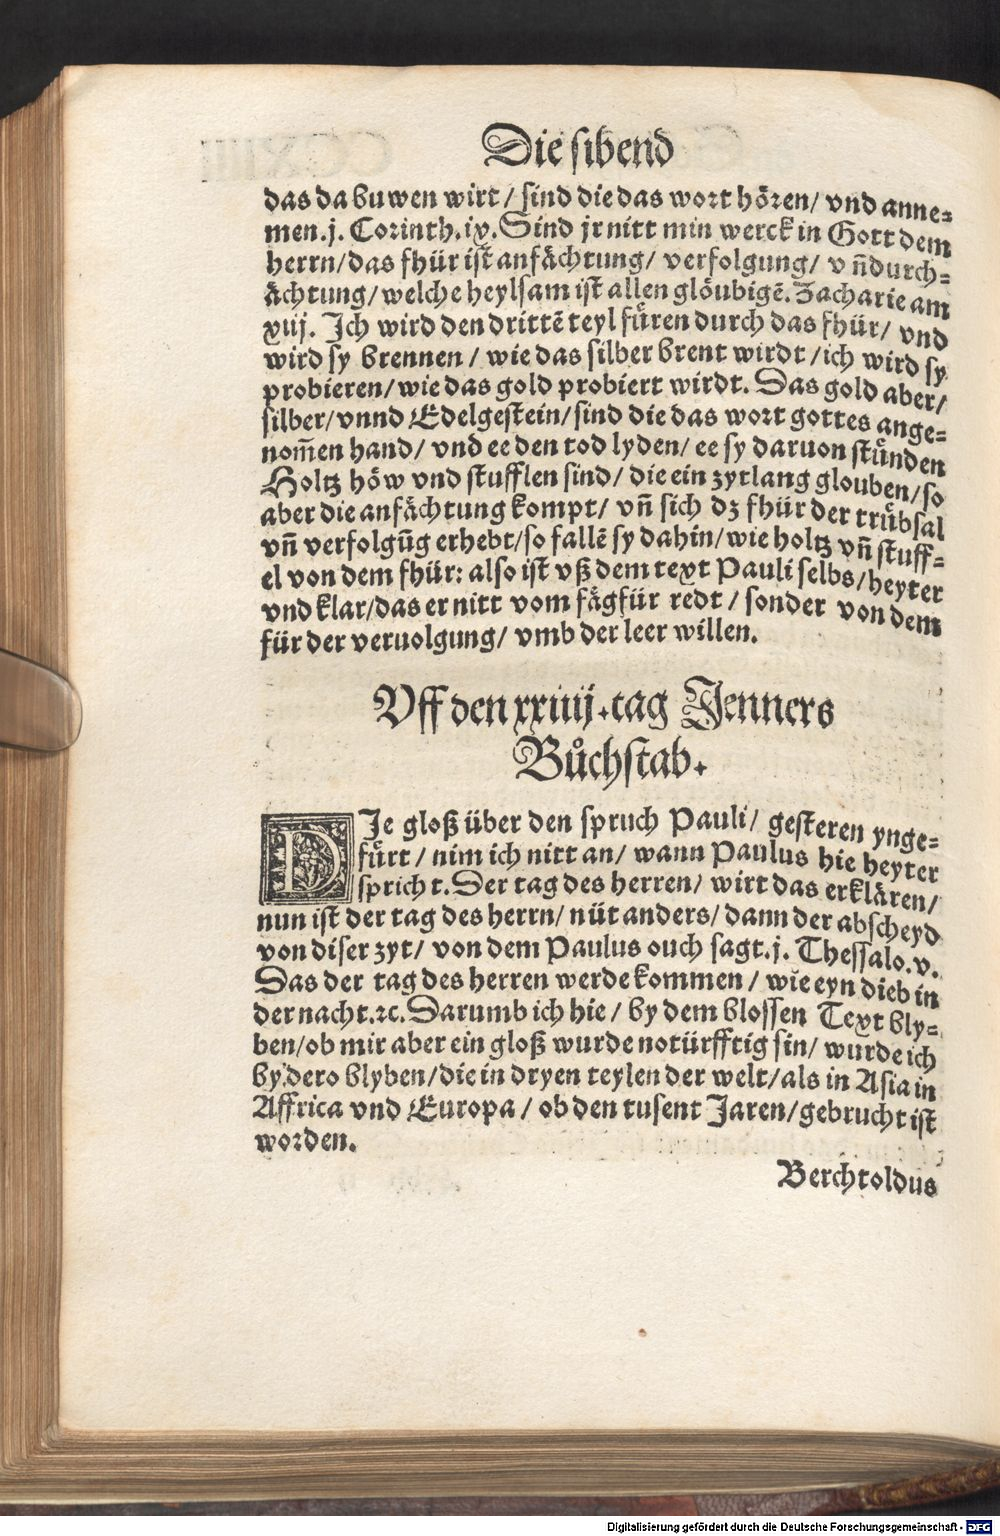 Die sibend
das da buwen wirt / sind die das wort hören / vnd anne=
men. j. Corinth. ix. Sind jr nitt min werck in Gott dem
herrn / das fhür ist anfächtung / verfolgung / vn̄ durch=
ächtung / welche heylsam ist allen glöubigē. Zacharie am
xiij. Ich wird den drittē teyl füren durch das fhür / vnd
wird sy brennen / wie das silber brent wirdt / ich wird sy
probieren / wie das gold probiert wirdt. Das gold aber /
silber / vnnd Edelgestein / sind die das wort gottes ange=
nom̄en hand / vnd ee den tod lyden / ee sy daruon stünden
Holtz höw vnd stufflen sind / die ein zytlang glouben / so
aber die anfächtung kompt / vn̄ sich dz fhür der trübsal
vn̄ verfolgūg erhebt / so fallē sy dahin / wie holtz vn̄ stuff=
el von dem fhür: also ist vß dem text Pauli selbs / heyter
vnd klar / das er nitt vom fägfür redt / sonder von dem
für der veruolgung / vmb der leer willen.
Vff den xxiiij. tag Jenners
Bůchstab.
DIe gloß über den spruch Pauli / gesteren ynge=
fürt / nim ich nitt an / wann Paulus hie heyter
spricht. Der tag des herren / wirt das erklären /
nun ist der tag des herrn / nüt anders / dann der abscheyd
von diser zyt / von dem Paulus ouch sagt. j. Thessalo. v.
Das der tag des herren werde kommen / wie eyn dieb in
der nacht. ꝛc. Darumb ich hie / by dem blossen Text bly=
ben / ob mir aber ein gloß wurde notürfftig sin / wurde ich
by dero blyben / die in dryen teylen der welt / als in Asia in
Affrica vnd Europa / ob den tusent Jaren / gebrucht ist
worden.
Berchtoldus
Digitalisierung gefördert durch die Deutsche Forschungsgemeinschaft - DFG